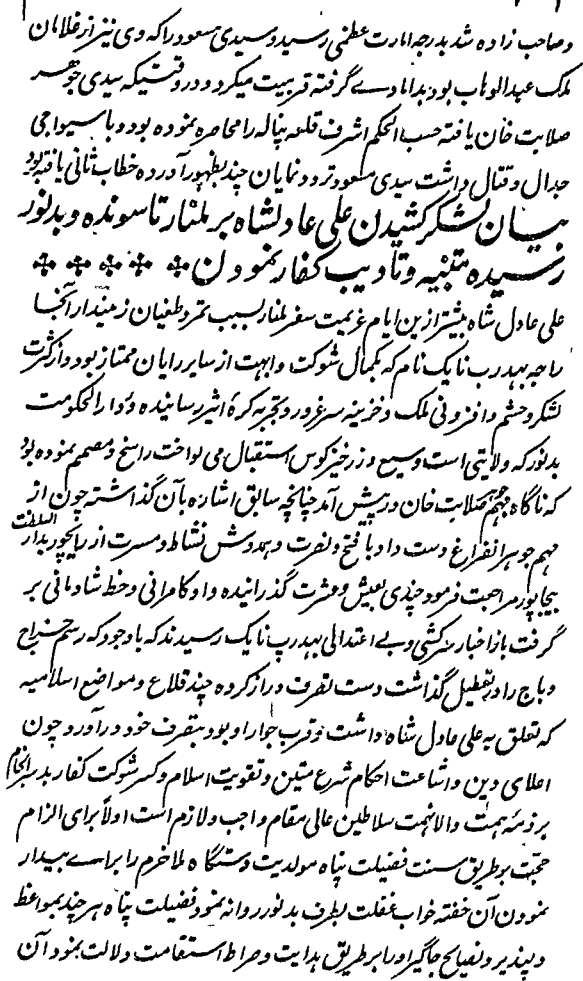 و صاحب زاده شد بدرجه امارت عظمی رسید و سیدی مسعود را که وی نیز از غلامان
ملک عبدالوهاب بود بدامادے گرفته تربیت میکرد و در وقتیکه سیدی جوهر
صلابت خان یافته حسب الحکم اشرف قلعه پناله را محاصره نموده بود و با سیواجی
جدال و قتال داشت سیدی مسعود تردد نمایان چند بظهور آورده خطاب ثانی یافته بود
بیان لشکر کشیدن علی عادلشاه بر ملنار تا سونده و بدنور
رسیده تنبیه و تادیب کفار نمودن
علی عادل شاه پیشتر ازین ایام عزیمت سفر ملنار بسبب تمرد و طغیان زمیندار آنجا
راجه بهدرپ نایک نام که بکمال شوکت و ابهت از سایر رایان ممتاز بود و از کثرت
لشکر و حشم و افزونی ملک و خزینه سر غرور و تجبر بکرۀ اثیر رسانیده و دار الحکومت
بدنور که ولایتی است وسیع و زرخیز کوس استقبال می نواخت راسخ و مصمم نموده بود
که ناگاه مهم جوهر صلابت خان در پیش آمد چنانچه سابق اشاره بآن گذاشته چون از
مهم جوهر انفراغ دست داد با فتح و نصرت و همدوش نشاط و مسرت از رایچور بدار السلطنت
بیجاپور مراجعت فرمود چندی بعیش و عشرت گذرانیده داد کامرانی و حظ شادمانی بر
گرفت باز اخبار سرکشی و بے اعتدالی بهدرپ نایک رسیدند که باوجود که رسم خراج
و باج را در تعطیل گذاشت دست تصرف دراز کرده چند قلاع و مواضع اسلامیه
که تعلق به علی عادل شاه داشت و قرب جوار او بود بتصرف خود در آورد و چون
اعلای دین و اشاعت احکام شرع متین و تقویت اسلام و کسر شوکت کفار بد سرانجام
بر ذمۀ همت والا نهمت سلاطین عالی مقام واجب و لازم است اولاً برای الزام
حجت بر طریق سنت فضیلت پناه مولدیت دستگاه ملا خرم را براے بیدار
نمودن آن خفته خواب غفلت بطرف بدنور روانه نمود فضیلت پناه هر چند بمواعظ
دلپذیر و نصایح جاگیر او را بر طریق هدایت و صراط استقامت دلالت نمود آن